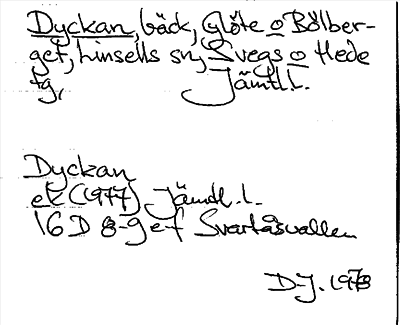 Dyckan, bäck, Glöte o Bölber-
get, Linsells sn, Svegs o Hede
tg, Jämtl.l.
Dyckan
ek (1977) Jämtl.l.
16 D 8-9 e-f Svartåsvallen
D-J. 1978